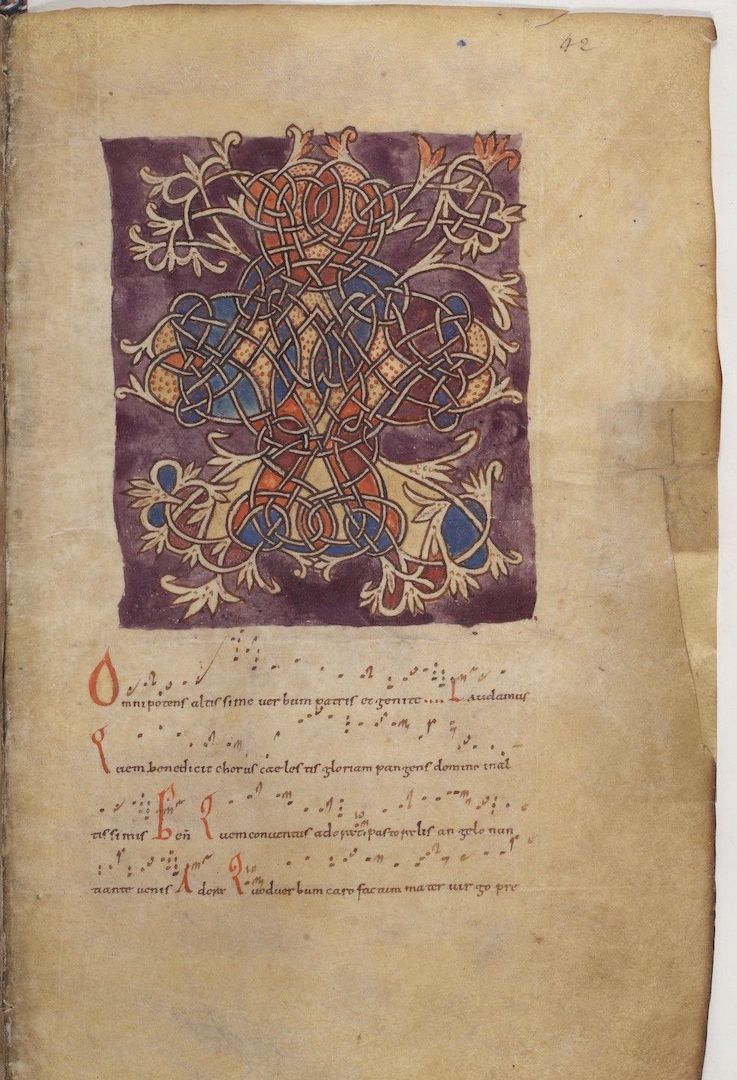 42
Omnipotens altissime verbum patris et genite Laudamus
Quem benedicit chorus caelestis gloriam pangens domine in al
tissimis Ben Quem conventus adoret pastorelis angelo nun
tiante venis Adore Quod verbum caro factum mater virgo pre